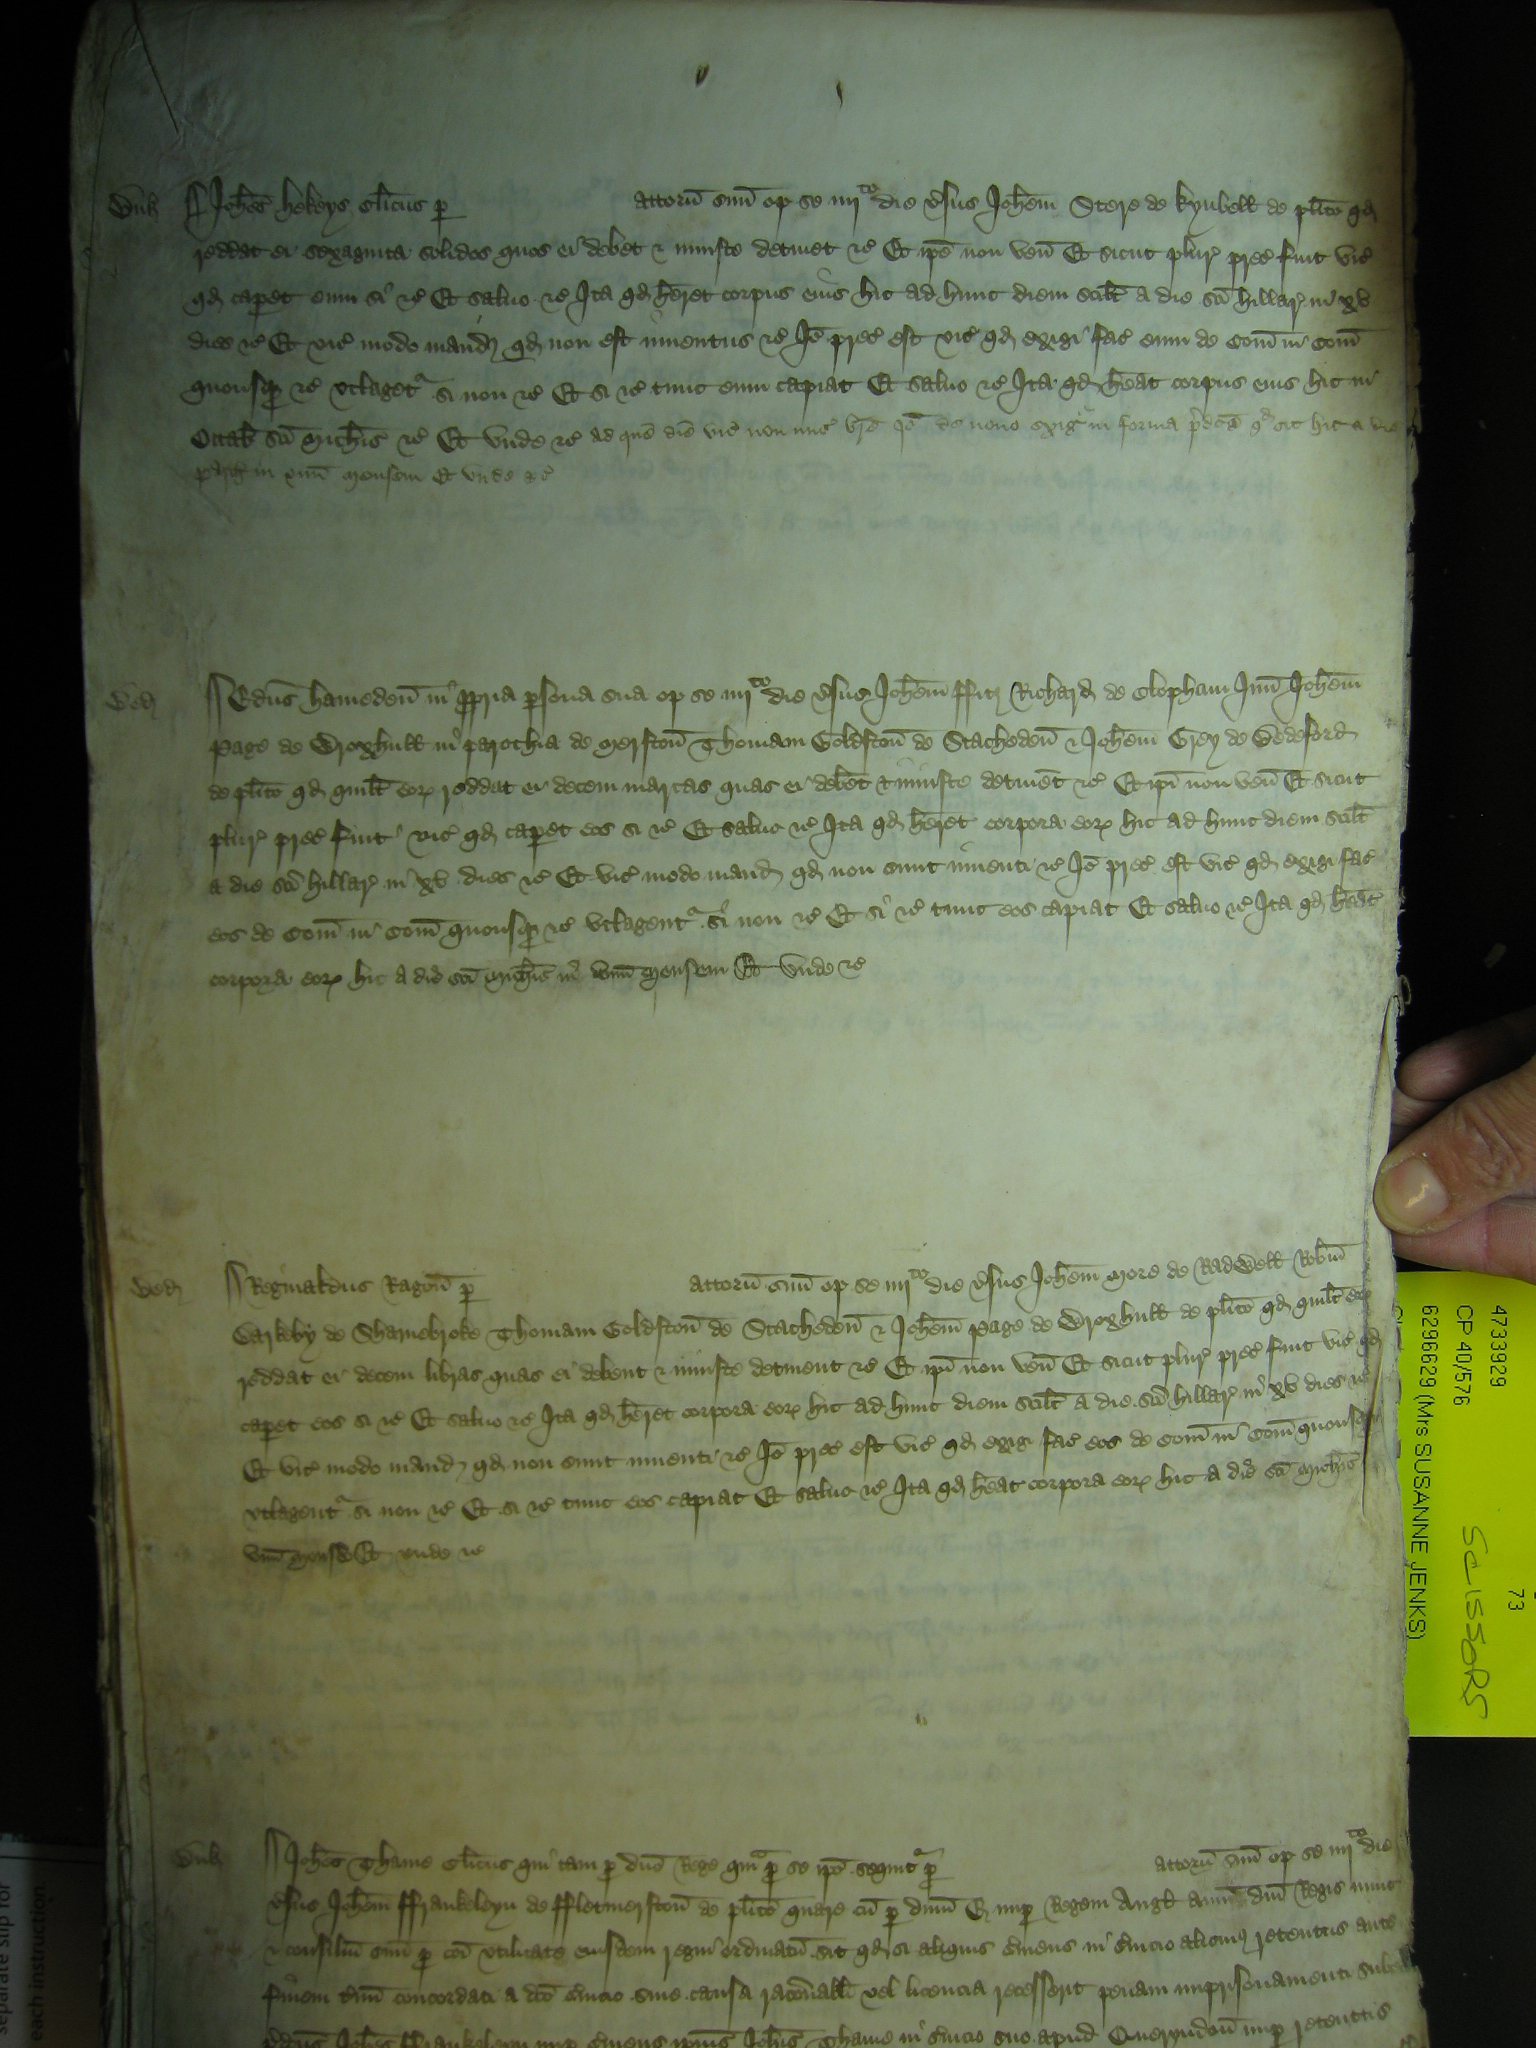 Buk Joh̄es Hekeys cl̄icus p̱ attorn̄ suū op se iiijᵗᵒ die v̄sus Joh̄em Stere de Kynbell de pl̄ito qd
reddat ei sexaginta solidos quos ei debet & iniuste detinet &c̄ Et ip̄e non ven̄ Et sicut plur̄ prec̄ fuit vic̄
qd cap̱et eum si &c̄ Et saluo &c̄ Ita qd h̄eret corpus eius hic ad hunc diem scil̄t a die sc̄i Hillar̄ in xv
dies &c̄ Et vic̄ modo mand̄ qd non est inuentus &c̄ Jō prec̄ est vic̄ qd exigi fac̄ eum de Com̄ in Com̄
quousq̱ &c̄ vtlaget᷑ si non &c̄ Et si &c̄ tunc eum capiat Et saluo &c̄ Ita qd h̄eat corpus eius hic in
Octab̄ sc̄i Mich̄is &c̄ Et vnde &c̄ ad quē diē vic̄ non mis̄ br̄e Jō de nouo exig᷑ in forma p̄dc̄a qd sit hic a die
Pasch̄ in vnū mensem Et vnde &c̄
Bed Edus̄ Hameden̄ in p̱pria p̱sona sua op se iiijᵗᵒ die v̄sus Joh̄em ffitz Richard de Clopham Jun̄ Joh̄em
Page de Wroxhull in parochia de Merston̄ Thomam Goldston̄ de Stacheden̄ & Joh̄em Grey de Bedeford
de pl̄ito qd quil̄t eoꝝ reddat ei decem marcas quas ei deben̄t & iniuste detinen̄t &c̄ Et ip̄i non ven̄ Et sicut
plur̄ prec̄ fuit vic̄ qd cap̱et eos si &c̄ Et saluo &c̄ Ita qd h̄eret corpora eoꝝ hic ad hunc diem scil̄t
a die sc̄i Hillar̄ in xv dies &c̄ Et vic̄ modo mand̄ qd non sunt inuenti &c̄ Jō prec̄ est vic̄ qd exigi fac̄
eos de Com̄ in Com̄ quousq̱ &c̄ vtlagent᷑ si non &c̄ Et si &c̄ tunc eos capiat Et saluo &c̄ Ita qd h̄eat
corpora eoꝝ hic a die sc̄i Mich̄is in vnū mensem Et vnde &c̄
Bed Reginaldus Ragon̄ p̱ attorn̄ suū op se iiijᵗᵒ die v̄sus Joh̄em More de Radwell Rob̄tū
Carkeby de Sharnebroke Thomam Goldston̄ de Stacheden̄ & Joh̄em Page de Wroxhull de pl̄ito qd quil̄t eoꝝ
reddat ei decem libras quas ei debent & iniuste detinent &c̄ Et ip̄i non ven̄ Et sicut plur̄ prec̄ fuit vic̄ qd
cap̱et eos si &c̄ Et saluo &c̄ Ita qd h̄eret corpora eoꝝ hic ad hunc diem scil̄t a die sc̄i Hillar̄ in xv dies &c̄
Et vic̄ modo mand̄ qd non sunt inuenti &c̄ Jō prec̄ est vic̄ qd exigi fac̄ eos de Com̄ in Com̄ quousq̱
vtlagent᷑ si non &c̄ Et si &c̄ tunc eos capiat Et saluo &c̄ Ita qd h̄eat corpora eoꝝ hic a die sc̄i Mich̄is
vnū mense Et vnde &c̄
Buk Joh̄es Thame cl̄icus qui tam p̱ dn̄o Rege qᵐ p̱ se ip̄o sequit᷑ p̱ attorn̄ suū op se iiijᵗᵒ die
v̄sus Joh̄em ffrankeleyn de ffletmerston̄ de pl̄ito quare cū p̱ dn̄m E nup̱ Regem Angl̄ auū dn̄i Regis nunc
& consiliū suū p̱ cōi vtilitate eiusdem regni ordinatū sit qd si aliquis s̄uiens in s̄uicio alicuius retentus ante
finem t̄mi concordati a dc̄o s̄uicio sine causa rac̄onabili vel licencia recesserit penam imprisonamenti
p̄dc̄us Joh̄es ffrankeleyn nup̱ s̄uiens ip̄ius Joh̄is Thame in s̄uicio suo apud Queryndon̄ nup̱ retentus
4733929
CP 40/576
6296629 (Mrs SUSANNE JENKS)
73
SCISSORS
separate slip for
each instruction.